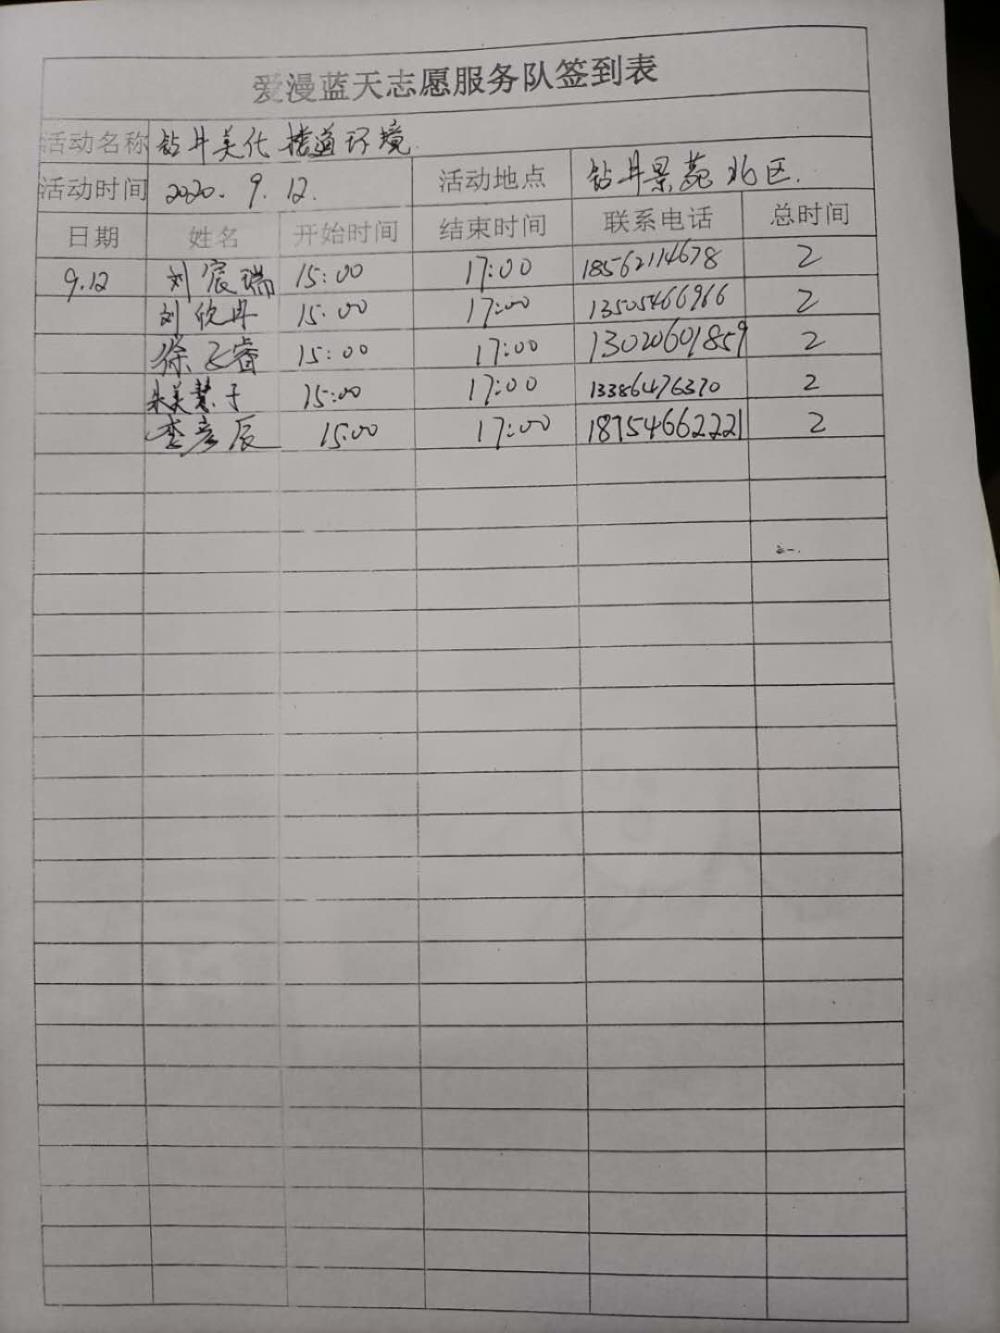 爱漫蓝天志愿服务队签到表
活动名称 钻井美化楼道环境
活动时间 2020. 9. 12. 活动地点 钻井景苑北区.
日期 姓名 开始时间 结束时间 联系电话 总时间
9.12 刘宸瑞 15:00 17:00 18562114678 2
刘欣冉 15:00 17:00 13505466966 2
徐飞睿 15:00 17:00 13020601859 2
朱美慧子 15:00 17:00 13386476370 2
李彦辰 15:00 17:00 18754662221 2